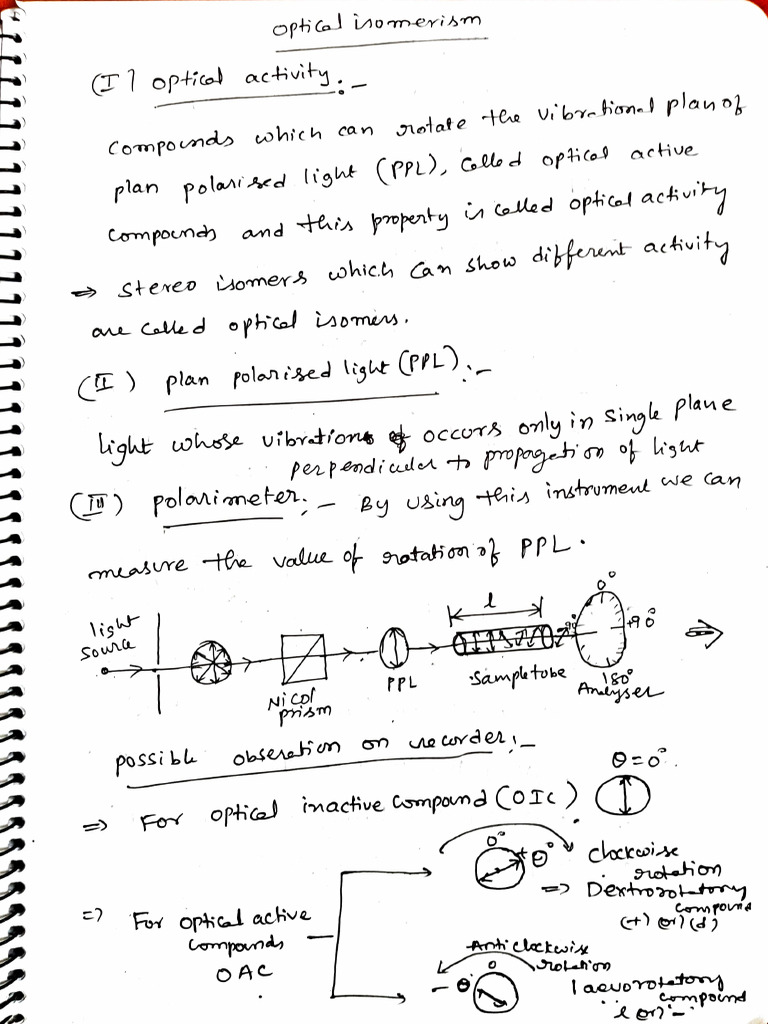 optical isomerism
(I) optical activity:-
compounds which can rotate the vibrational plan of
plan polarised light (PPL), called optical active
compounds and this property is called optical activity
⇒ stereo isomers which can show different activity
are called optical isomers.
(II) plan polarised light (PPL):-
light whose vibrations occurs only in single plane
perpendicular to propagation of light
(III) polarimeter:- By using this instrument we can
measure the value of rotation of PPL.
light source
Nicol prism
PPL
l
sample tube
0°
-90
+90°
180°
Analyser
⇒
possible obseration on recorder:-
⇒ For optical inactive compound (OIC)
θ=0°
⇒ For optical active
compounds
OAC
0°
+θ°
clockwise
rotation
⇒ Dextrorotatory
compound
(+) or (d)
Anticlockwise
rotation
0
-θ°
laevorotatory
compound
l or -